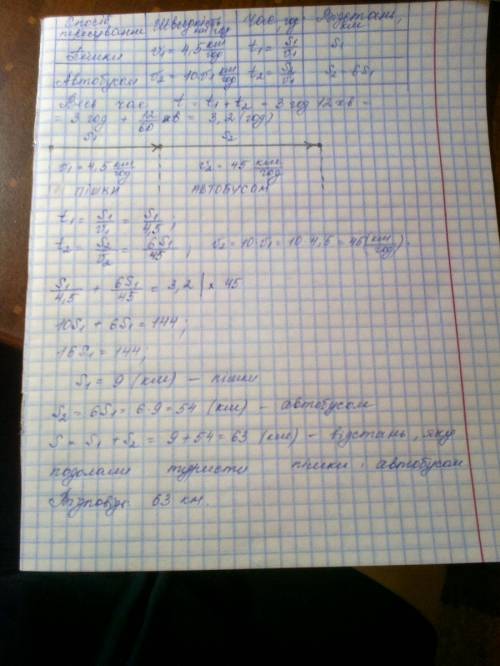 Спосіб Швидкість, Час, год Відстань,
пересування км/год км
Пішки v₁ = 4,5 км/год t₁ = S₁/v₁ S₁
Автобусом v₂ = 10·v₁ км/год t₂ = S₂/v₁ S₂ = 6S₁
Весь час t = t₁ + t₂ = 3 год 12 хв =
= 3 год + 12/60 хв = 3,2 (год)
S₁ S₂
v₁ = 4,5 км/год v₂ = 45 км/год
пішки автобусом
t₁ = S₁/v₁ = S₁/4,5 ;
t₂ = S₂/v₂ = 6S₁/45 ; v₂ = 10·v₁ = 10·4,5 = 45 (км/год).
S₁/4,5 + 6S₁/45 = 3,2 | × 45
10S₁ + 6S₁ = 144 ;
16S₁ = 144 ;
S₁ = 9 (км) – пішки
S₂ = 6S₁ = 6·9 = 54 (км) – автобусом
S = S₁ + S₂ = 9 + 54 = 63 (км) – відстань, яку
подолали туристи пішки і автобусом
Відповідь: 63 км.